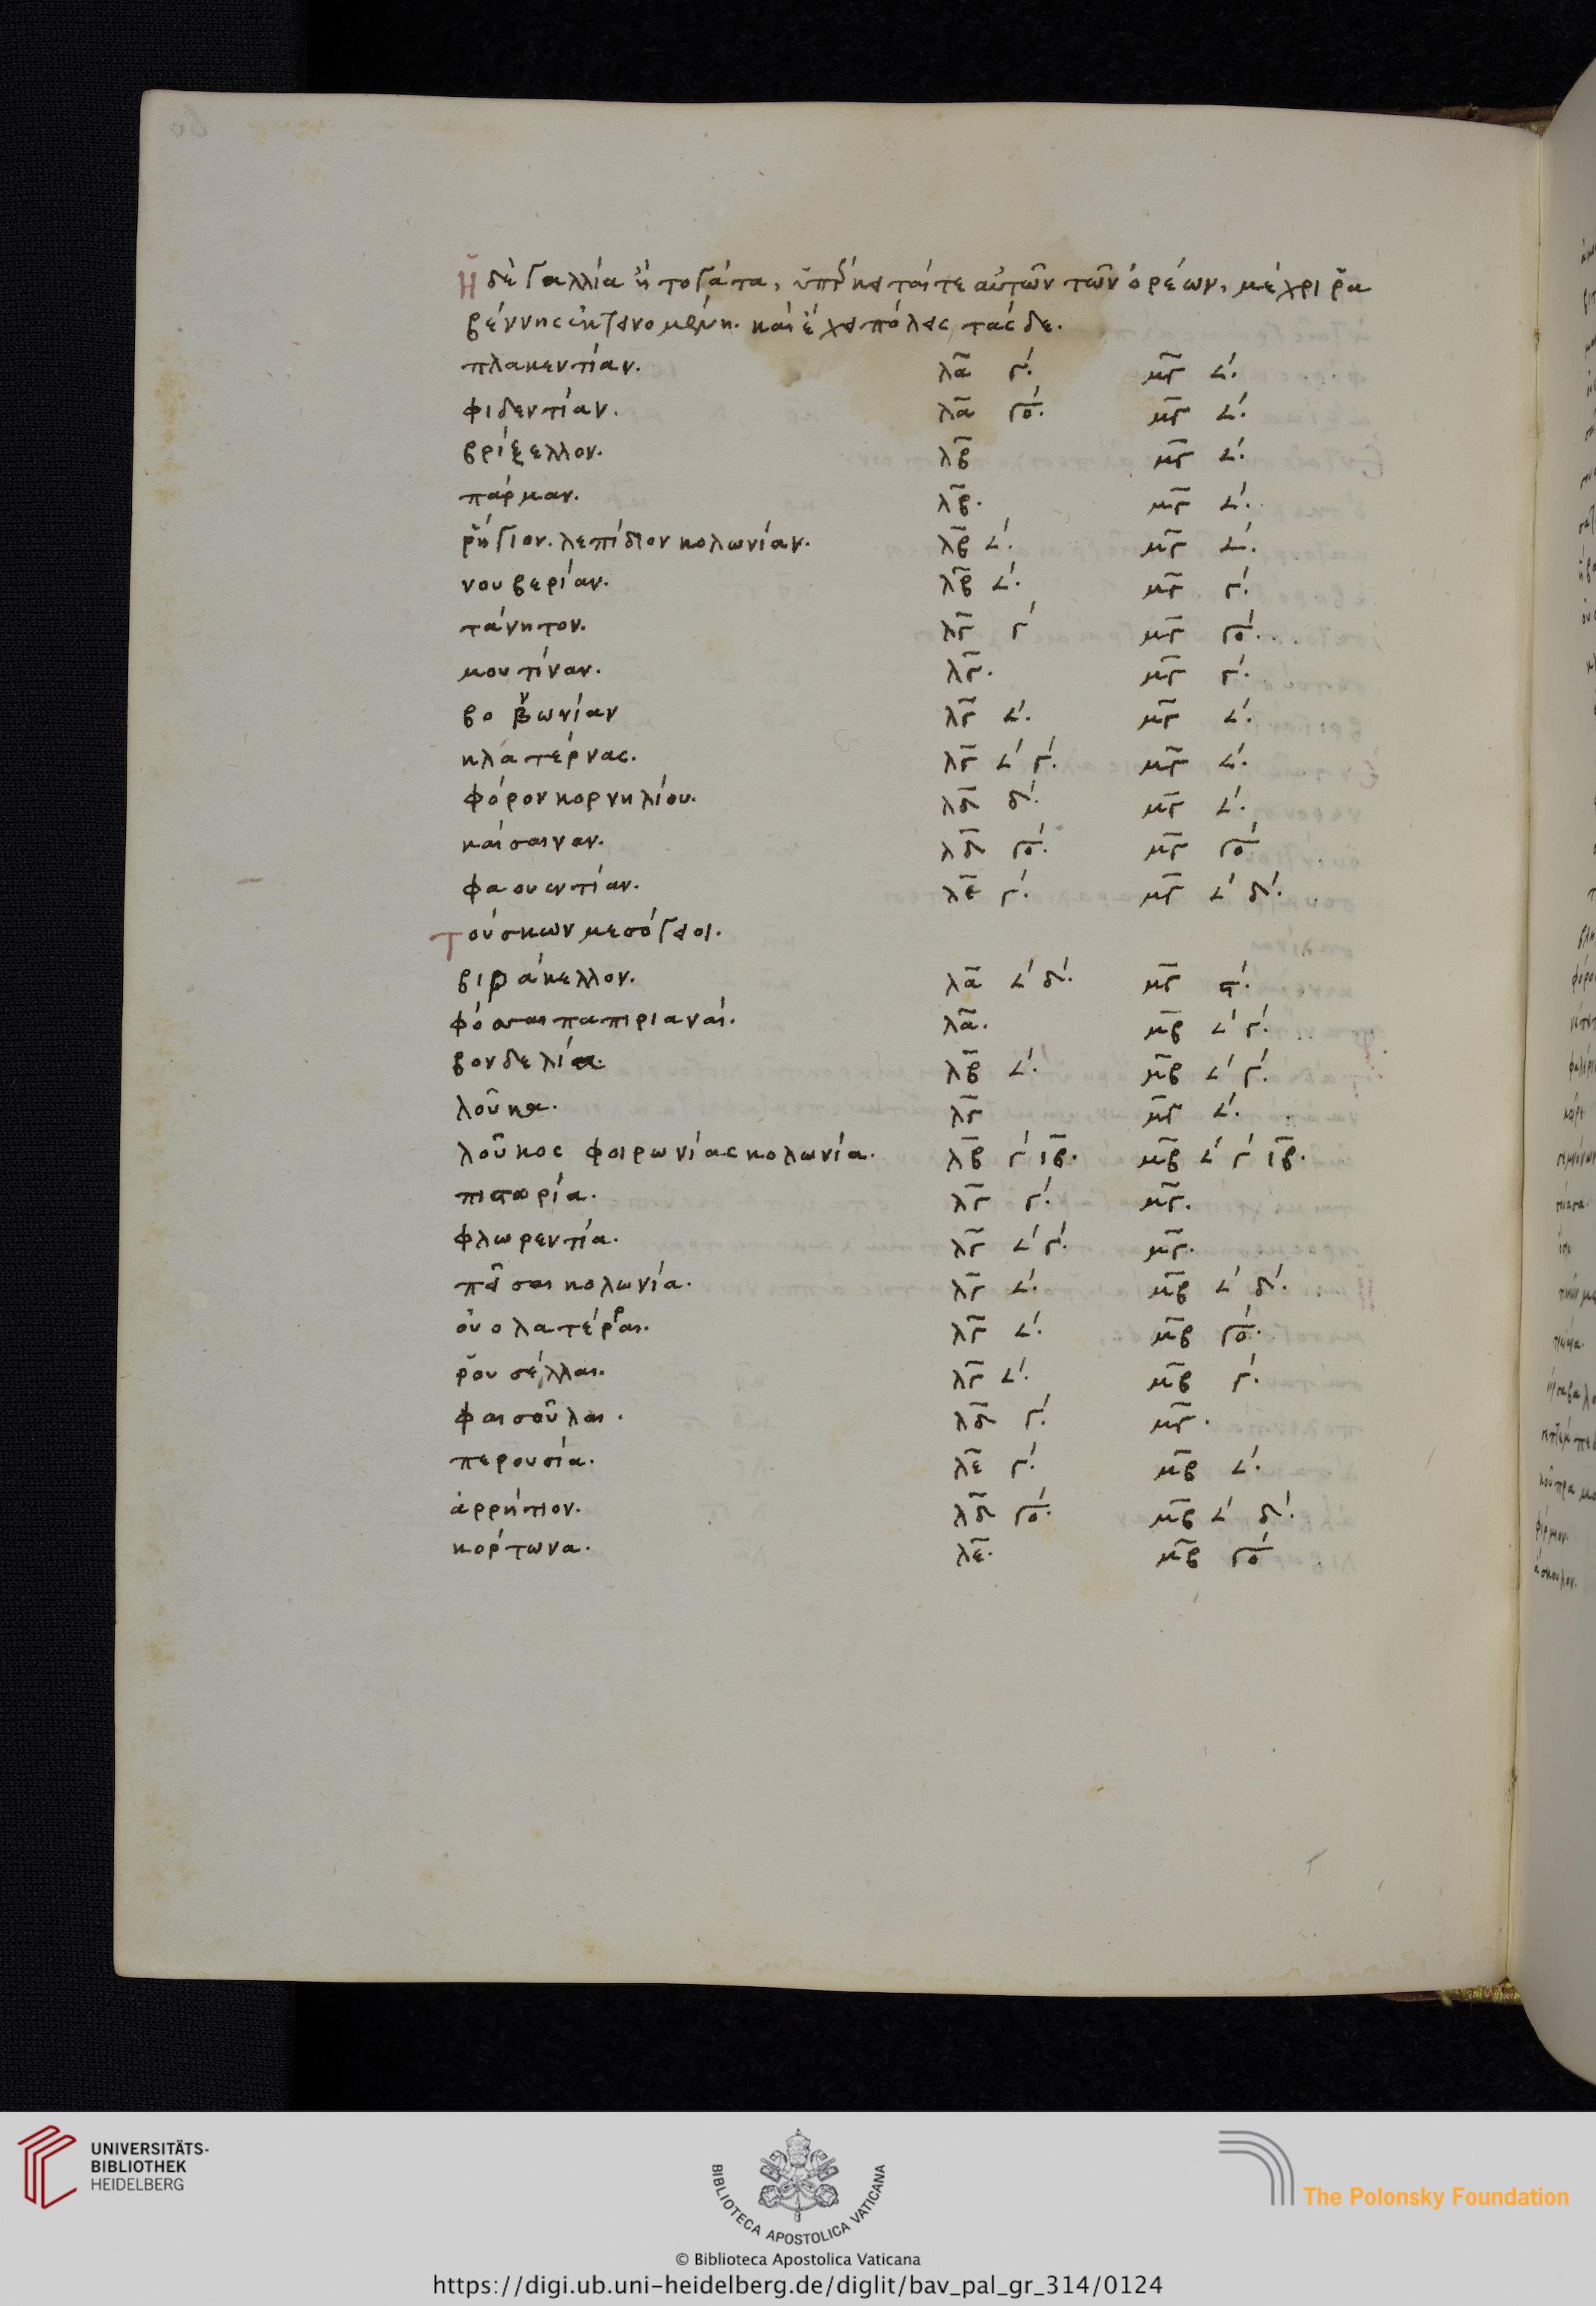 Ἡ δὲ Γαλλία ἡ τογάτα, ὑπέρκειται τε αὐτῶν τῶν ὀρέων, μέχρι ῥα
βέννης ἐκτεινομένη. καὶ ἔχει πόλεις τάς δε.
πλακεντίαν. λα γ´. μγ ∠´.
φιδεντίαν. λα γο´. μγ ∠´.
βρίξελλον. λβ μγ ∠´.
πάρμαν. λβ. μγ ∠´.
ῥήγιον. λεπίδιον κολωνίαν. λβ ∠´. μγ ∠´.
νουβερίαν. λβ ∠´. μγ γ´.
τάνητον. λγ γ´ μγ γο´.
μουτίναν. λγ. μγ γ´.
βοβωνίαν λγ ∠´. μγ ∠´.
κλατέρνας. λγ ∠´ γ´. μγ ∠´.
φόρον κορνηλίου. λδ δ´. μγ ∠´.
καίσαιναν. λδ γο´. μγ γο´
φαουεντίαν. λε γ´. μγ ∠´ δ´.
Τούσκων μεσόγειοι.
βιράκελλον. λα ∠´ δ´. μγ
φόσσαι παπιριαναί. λα. μβ ∠´ γ´.
βονδελία. λβ ∠´. μβ ∠´ γ´.
λοῦκα. λγ μγ ∠´.
λοῦκος φοιρωνίας κολωνία. λβ γ´ ιβ. μβ ∠´ γ´ ιβ.
πιστωρία. λγ γ´. μγ.
φλωρεντία. λγ ∠´ γ´. μγ.
πεῖσαι κολωνία. λγ ∠´. μβ ∠´ δ´.
οὐολατέρραι. λγ ∠´. μβ γο´.
ῥουσέλλαι. λγ ∠´. μβ γ´.
φαισοῦλαι. λδ γ´. μγ.
περουσία. λε γ´. μβ ∠´.
ἀρρήτιον. λδ γο´. μβ ∠´ δ´.
κόρτωνα. λε. μβ γο´
UNIVERSITÄTS-
BIBLIOTHEK
HEIDELBERG
BIBLIOTECA APOSTOLICA VATICANA
The Polonsky Foundation
© Biblioteca Apostolica Vaticana
https://digi.ub.uni-heidelberg.de/diglit/bav_pal_gr_314/0124